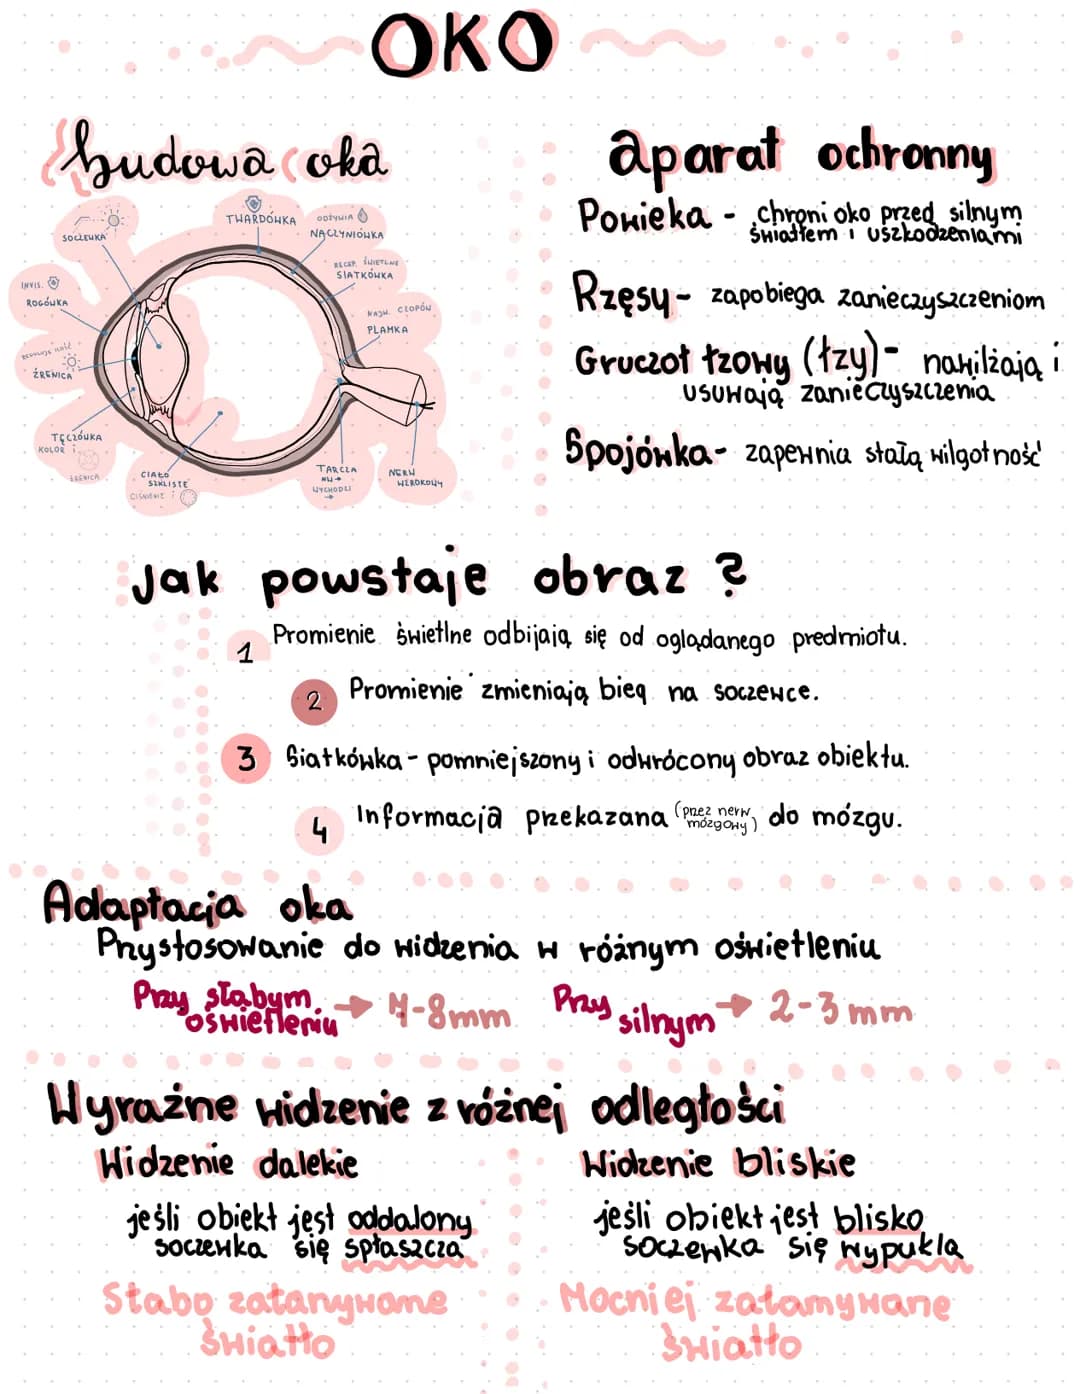 OKO
budowa oka
SOCZEWKA
TWARDÓWKA
ODŻYWIA
NACZYNIÓWKA
RECEP. ŚWIETLNE
SIATKÓWKA
INVIS.
ROGÓWKA
NAJW. CZOPÓW
PLAMKA
REGULUJE ILOŚĆ
ŹRENICA
TĘCZÓWKA
KOLOR i
ŹRENICA
CIAŁO
SZKLISTE
CIŚNIENIE i
TARCZA
NW →
WYCHODZI
→
NERW
WZROKOWY
aparat ochronny
Powieka - chroni oko przed silnym
światłem i uszkodzeniami
Rzęsy - zapobiega zanieczyszczeniom
Gruczoł łzowy (łzy) - nawilżają i
usuwają zanieczyszczenia
Spojówka - zapewnia stałą wilgotność
Jak powstaje obraz ?
1 Promienie świetlne odbijają się od oglądanego predmiotu.
2 Promienie zmieniają bieg na soczewce.
3 Siatkówka - pomniejszony i odwrócony obraz obiektu.
4 Informacja przekazana (przez nerw mózgowy) do mózgu.
Adaptacja oka
Przystosowanie do widzenia w różnym oświetleniu
Przy słabym
oświetleniu → 4-8mm
Przy
silnym → 2-3 mm
Wyraźne widzenie z różnej odległości
Widzenie dalekie
jeśli obiekt jest oddalony
soczewka się spłaszcza
Słabo załamywane
światło
Widzenie bliskie
jeśli obiekt jest blisko
soczewka się wypukla
Mocniej załamywane
światło